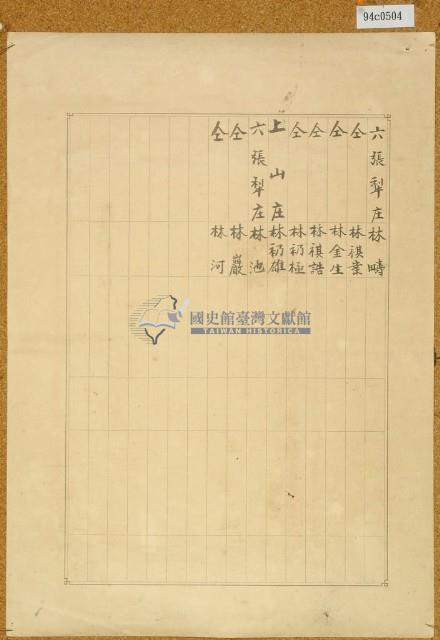 94c0504
六張犁庄林疇
仝林祺業
仝林金生
仝林祺誥
仝林礽極
上山庄林礽雄
六張犁庄林池
仝林巖
仝林河
國史館臺灣文獻館
TAIWAN HISTORICA